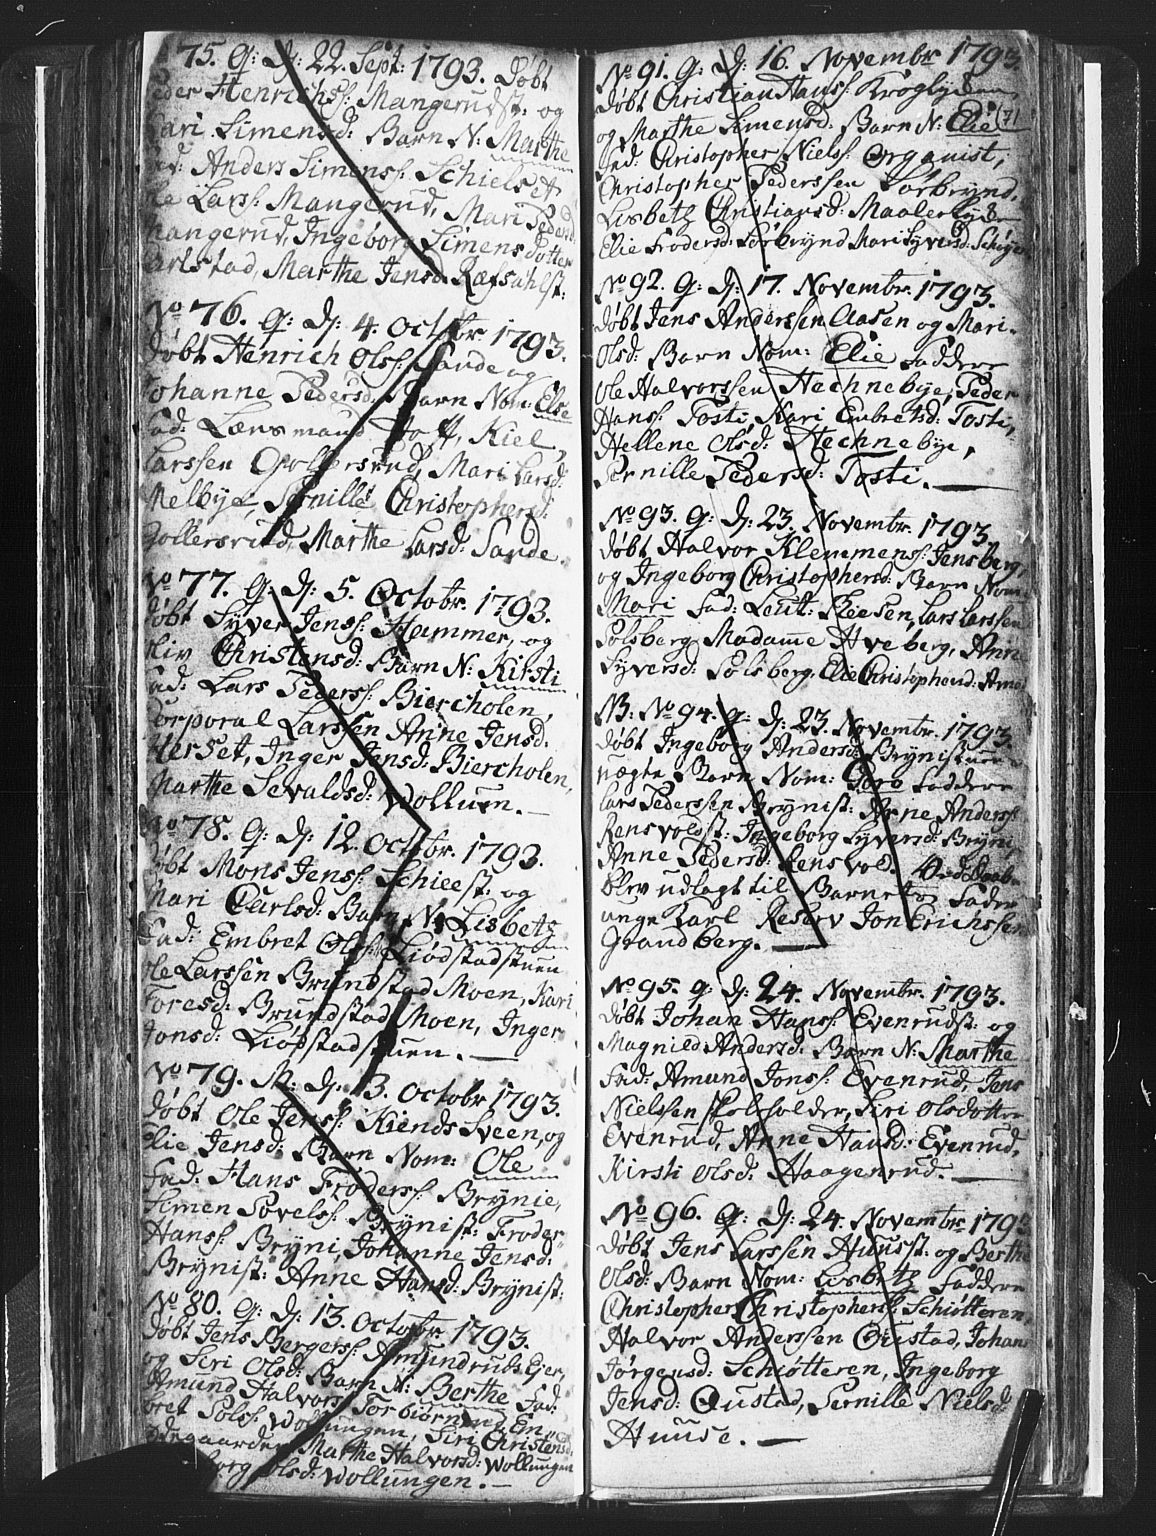 75. Q: D: 22. Sept: 1793. Døbt
Henrichs: Mangerudst: og
Kari Simensd: Barn N: Marthe
Fad: Anders Simens: Schielset
Ole Larss: Mangerud, Mari Pedersd:
Mangerud, Ingeborg Simens Dotter
Karlstad, Marthe Jensd: Ræfsahlst:
No 76. Q: D: 4. Octobr 1793.
Døbt Henrich Ols: Sande og
Johanne Pedersd: Barn Nom: Else
Fad: Lænsmand Hoff, Kiel
Larssen Gollersrud, Mari Larsd:
Melbye, Pernille Christophersd:
Gollersrud, Marthe Larsd: Sande.
No 77. Q: D: 5. Octobr. 1793.
Døbt Syver Jens: Hammer, og
Liv Christensd: Barn N: Kirsti
Fad: Lars Peders: Biercholen,
Corporal Larssen Anne Jensd:
Herset, Inger Jensd: Biercholen,
Marthe Sevaldsd: Wollum.
No 78. Q: D: 12. Octobr. 1793.
Døbt Mons Jens: Schieest: og
Mari Carlsd: Barn N: Lisbeth
Fad: Embret Ols: Liødstadstuen
Ole Larssen Brundstad Moen, Kari
Toresd: Brundstad Moen, Inger
Jonsd: Liødstadstuen.
No 79. D: 13. Octobr 1793.
Døbt Ole Jens: Kiends Sveen, og
Elie Jensd: Barn Nom: Ole
Fad: Hans Froders: Brynie,
Simen Povels: Brynist: Froder
Hans: Bryni, Johanne Jensd:
Brynist: Anne Hansd: Brynist:
No 80. Q: D: 13. Octobr 1793.
Døbt Jens Bergers: Amundruds Ejer,
og Siri Olsd: Barn N: Berthe Fad:
Amund Halvors: Torbiørnrud Em-
bret Pols: Wollungen, Siri Christensd:
Ødegaarden Marthe Halvorsd: Wollungen
Olsd: Wollungen.
No 91. Q: D: 16. Novembr 1793.
Døbt Christian Hans: Krogbyden
og Marthe Simensd: Barn N: Elie 71
Fad: Christopher Niels: Organist,
Christopher Pederssen Sørbrynd,
Lisbeth Christiansd: Maalerbyden
Elie Frodersd: Sørbrynd Mari Syversd: Schøyen
No 92. Q: D: 17. Novembr. 1793.
Døbt Jens Anderssen Aasen og Mari
Olsd: Barn Nom: Elie Faddere
Ole Halvorssen Hechnebye, Peder
Hans: Tosti, Kari Enbretsd: Tosti,
Hellene Olsd: Hechnebye,
Pernille Pedersd: Tosti.
No 93. Q: D: 23. Novembr. 1793.
Døbt Halvor Klemmens: Jensberg,
og Ingeborg Christophersd: Barn Nom:
Mari Fad: Leut: Lars Larssen
Solsberg Madame Hveberg, Anne
Syversd: Solsberg, Elie Christophersd:
NB: No 94. Q: D: 23. Novembr. 1793.
Døbt Ingeborg Andersd: Brynistuen
uægte Barn Nom: Goro Faddere
Lars Pederssen Brynist: Arne Anders:
Rensvoldst: Ingeborg Syversd: Bryni,
Anne Pedersd: Rensvold. Ved Daab
blev udlagt til Barnets Fader
unge Karl Reserv Jon Erichssen
Grandberg.
No 95. Q: D: 24. Novembr. 1793.
Døbt Johan Hans: Evenrudst: og
Magnild Andersd: Barn N: Marthe
Fad: Amund Jons: Evenrud, Jens
Nielssen Skoleholder, Siri Olsdotter
Evenrud, Anne Hansd: Evenrud,
Kirsti Olsd: Haagenrud.
No 96. Q: D: 24. Novembr 1793
Døbt Jens Larssen Huusst: og Berthe
Olsd: Barn Nom: Lisbeth Faddere
Christopher Christophers: Schiøtteren,
Halvor Anderssen Qustad, Johan
Jørgensd: Schiøtteren, Ingeborg
Jensd: Qustad, Pernille Nielsd:
Huuse.